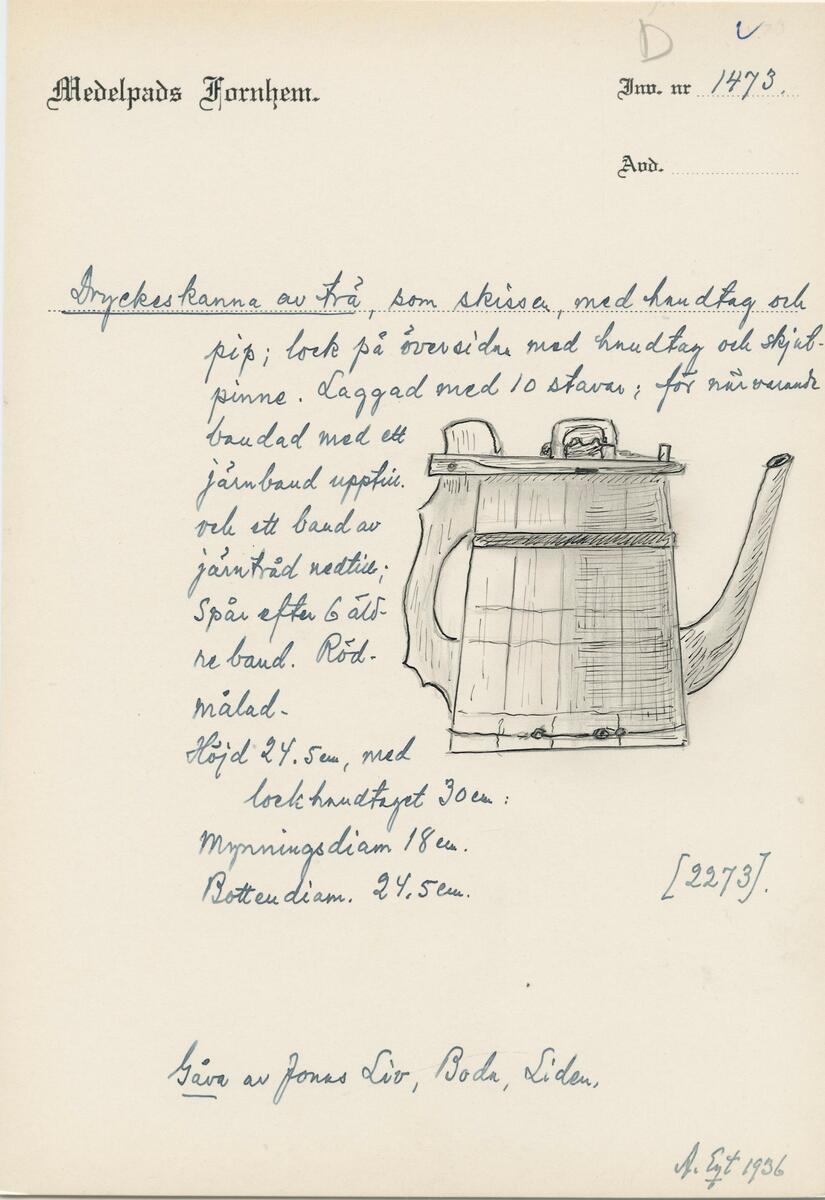 D
Medelpads Fornhem.
Inv. nr 1473.
Avd.
Dryckeskanna av trä, som skissen, med handtag och
pip; lock på översidan med handtag och skjut-
pinne. Laggad med 10 stavar; för närvarande
bandad med ett
järnband upptill.
och ett band av
järntråd nedtill;
Spår efter 6 äld-
re band. Röd-
målad.
Höjd 24.5 cm, med
lockhandtaget 30 cm:
Mynningsdiam 18 cm.
Bottendiam. 24.5 cm.
[2273].
Gåva av Jonas Liv, Boda, Liden.
A. 1936